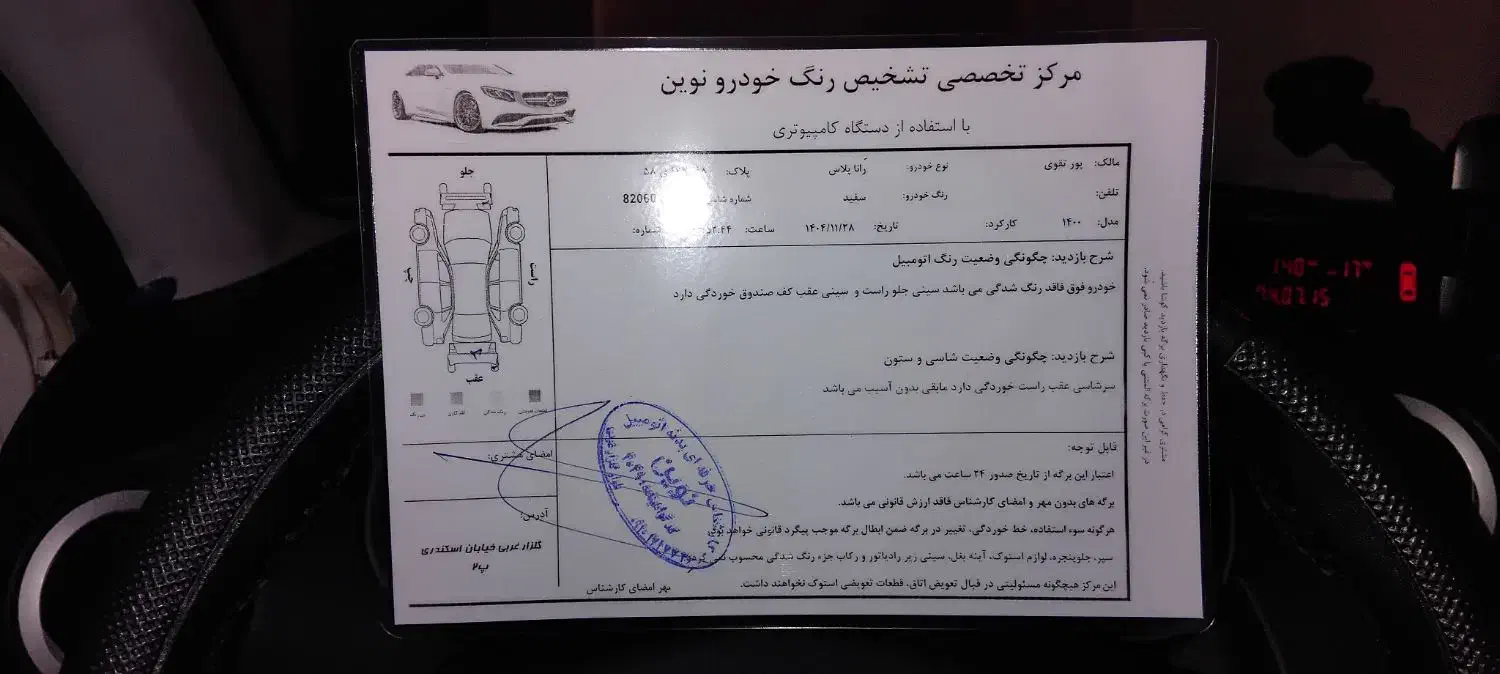 مرکز تخصصی تشخیص رنگ خودرو نوین
با استفاده از دستگاه کامپیوتری
مالک: پور تقوی نوع خودرو: رانا پلاس پلاک:
تلفن: رنگ خودرو: سفید شماره 82060
مدل: ۱۴۰۰ کارکرد: تاریخ: ۱۴۰۴/۱۱/۲۸ ساعت:
شرح بازدید: چگونگی وضعیت رنگ اتومبیل
خودرو فوق فاقد رنگ شدگی می باشد سینی جلو راست و سینی عقب کف صندوق خوردگی دارد
شرح بازدید: چگونگی وضعیت شاسی و ستون
سرشاسی عقب راست خوردگی دارد مابقی بدون آسیب می باشد
قابل توجه:
اعتبار این برگه از تاریخ صدور ۲۴ ساعت می باشد.
برگه های بدون مهر و امضای کارشناس فاقد ارزش قانونی می باشد.
هرگونه سوء استفاده، خط خوردگی، تغییر در برگه ضمن ابطال برگه موجب پیگرد قانونی خواهد بود
سپر، جلوپنجره، لوازم استوک، آینه بغل، سینی زیر رادیاتور و رکاب جزء رنگ شدگی محسوب نمی گردد
این مرکز هیچگونه مسئولیتی در قبال تعویض اتاق، قطعات تعویضی استوک نخواهند داشت.
مهر امضای کارشناس
جلو
راست
چپ
عقب
امضای مشتری:
آدرس:
گلزار غربی خیابان اسکندری
پ۲
بدنه اتومبیل
نوین